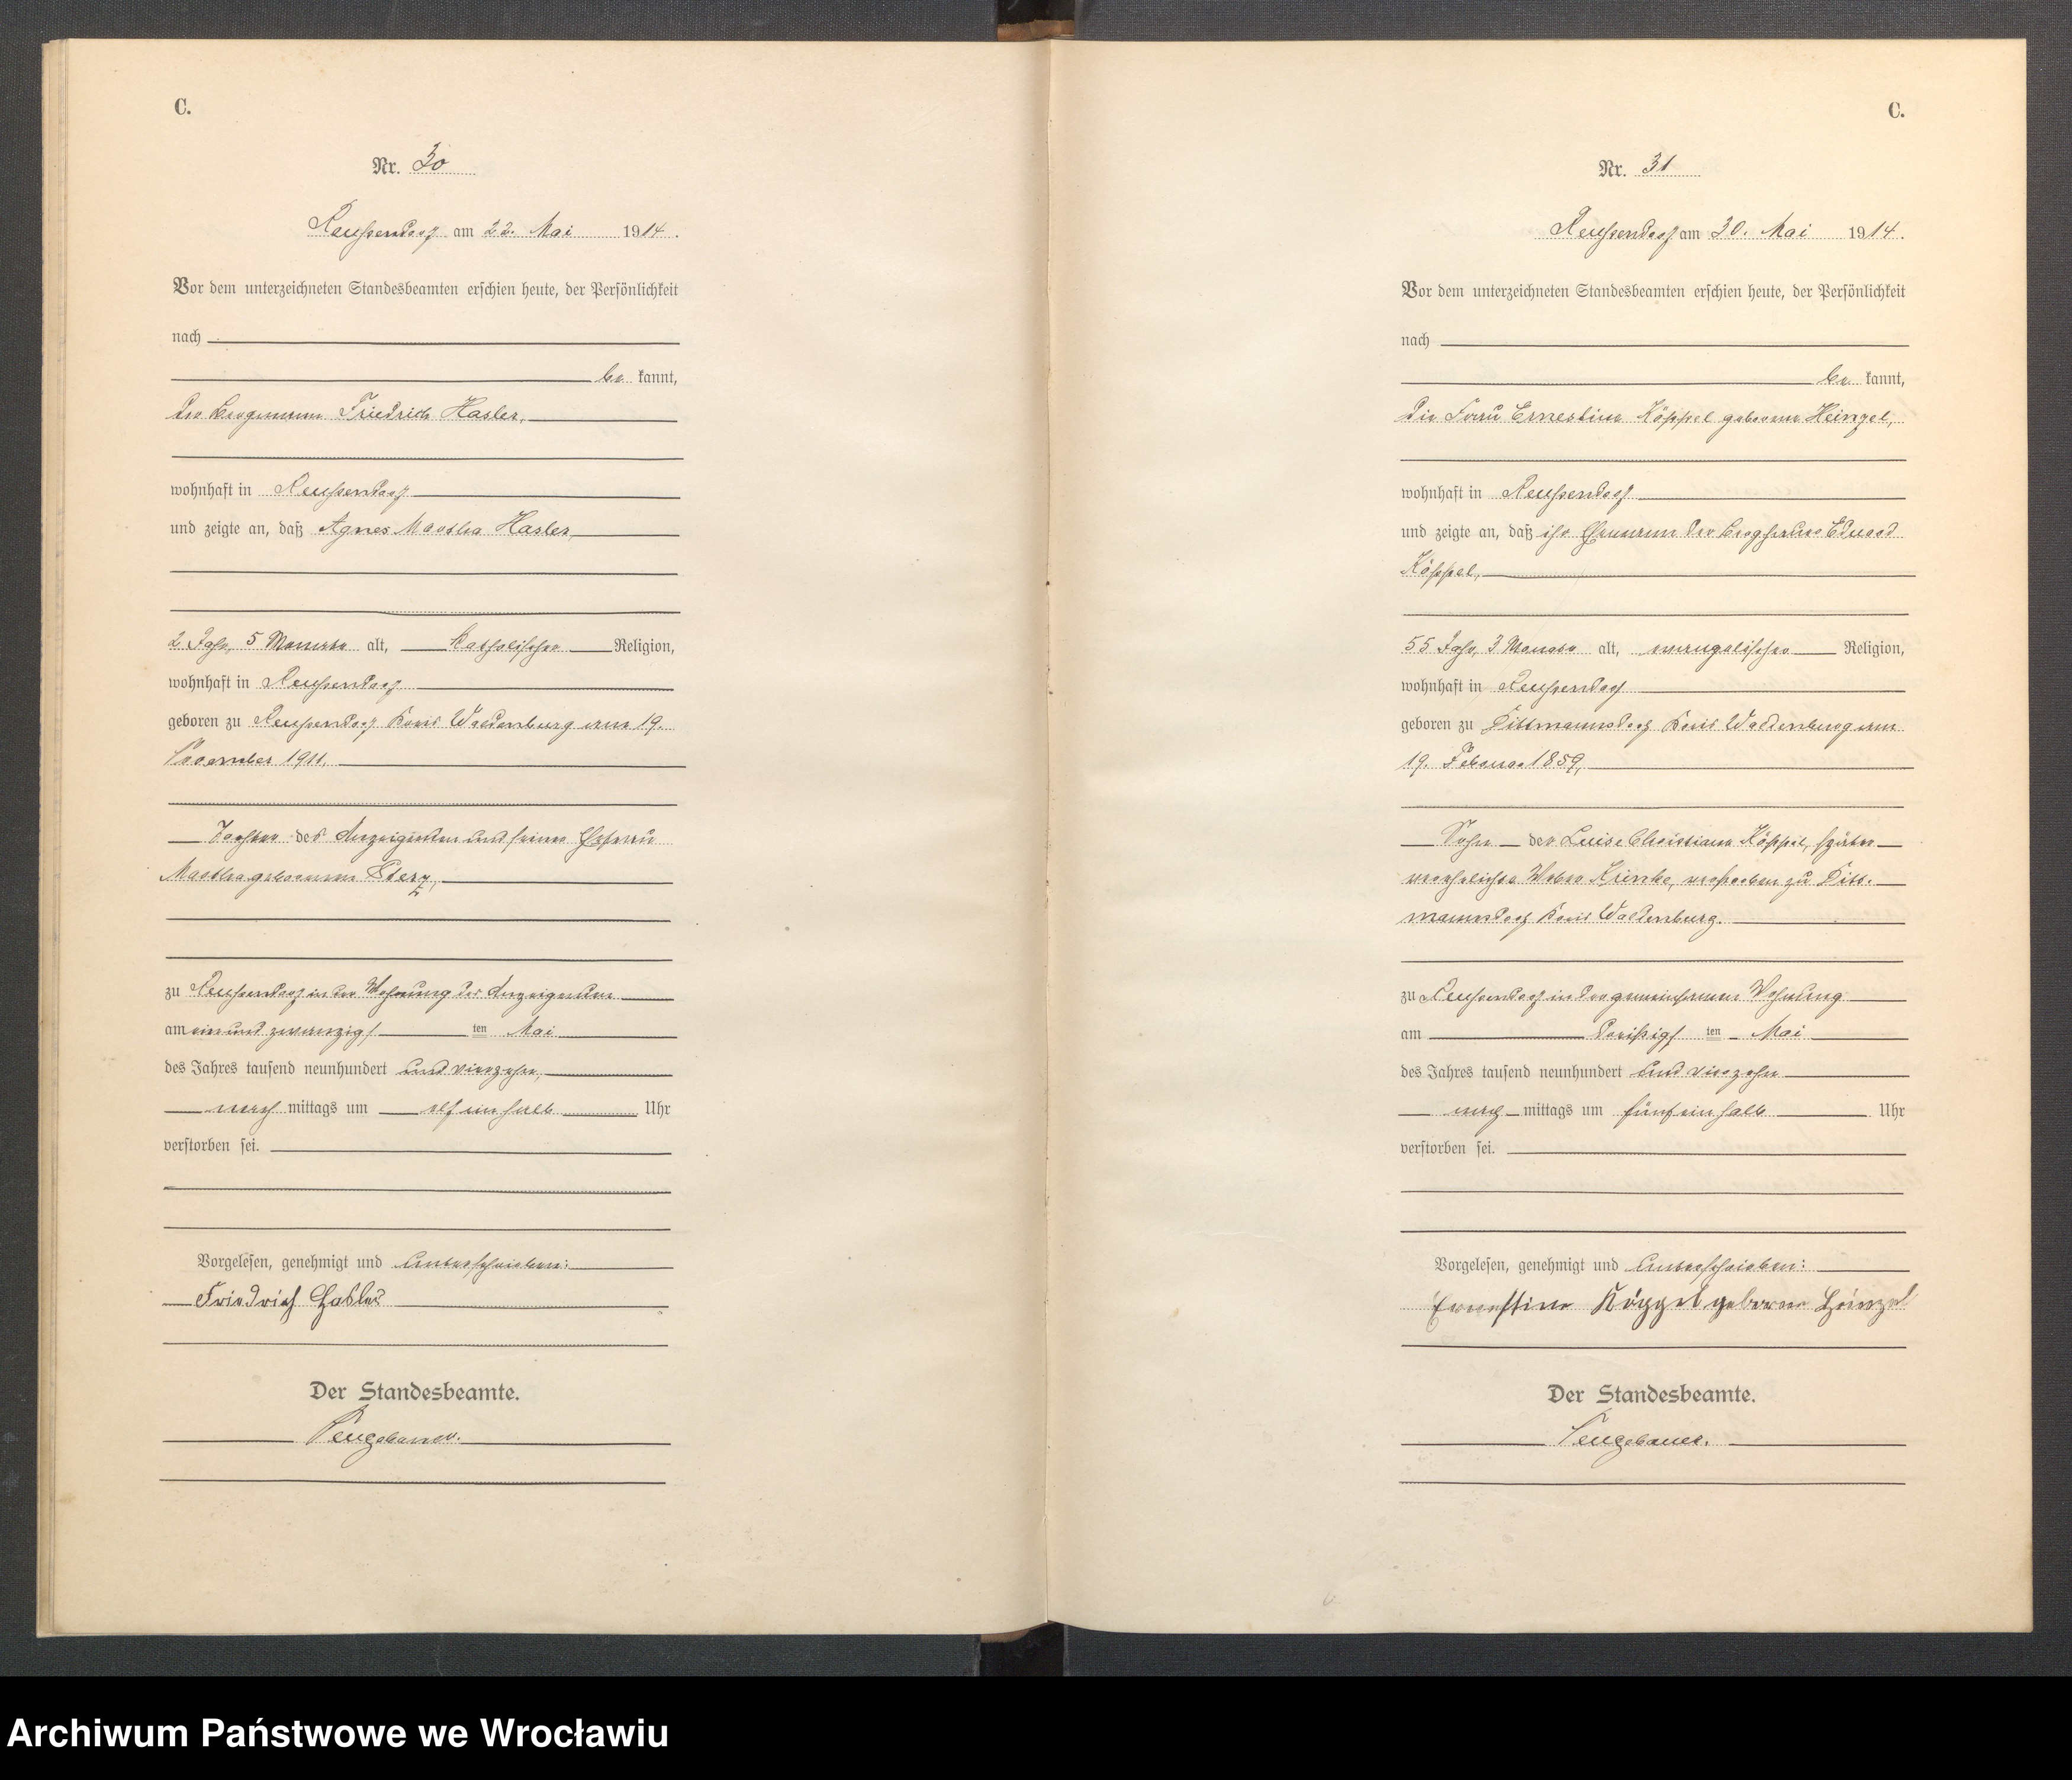 C.
Nr. 30
Reußendorf am 22. Mai 1914.
Vor dem unterzeichneten Standesbeamten erschien heute, der Persönlichkeit
nach
be kannt,
der Bergmann Friedrich Hasler,
wohnhaft in Reußendorf
und zeigte an, daß Agnes Martha Hasler,
2 Jahr, 5 Monate alt, katholischer Religion,
wohnhaft in Reußendorf
geboren zu Reußendorf Kreis Waldenburg am 19.
November 1911,
Tochter des Anzeigenden und seiner Ehefrau
Martha geborenen Sterz,
zu Reußendorf in der Wohnung des Anzeigenden
am ein und zwanzigs ten Mai
des Jahres tausend neunhundert und vierzehn,
nach mittags um elf ein halb Uhr
verstorben sei.
Vorgelesen, genehmigt und unterschrieben:
Friedrich Hasler
Der Standesbeamte.
Neugebauer.
C.
Nr. 31
Reußendorf am 30. Mai 1914.
Vor dem unterzeichneten Standesbeamten erschien heute, der Persönlichkeit
nach
be kannt,
die Frau Ernestine Köppel geborene Heinzel,
wohnhaft in Reußendorf
und zeigte an, daß ihr Ehemann der Berghauer Eduard
Köppel,
55 Jahr, 3 Monate alt, evangelischer Religion,
wohnhaft in Reußendorf
geboren zu Dittmannsdorf Kreis Waldenburg am
19. Februar 1859,
Sohn der Luise Christiane Köppel, später
verehelichte Weber Krinke, verstorben zu Ditt-
mannsdorf Kreis Waldenburg.
zu Reußendorf in der gemeinsamen Wohnung
am dreißigs ten Mai
des Jahres tausend neunhundert und vierzehn
nach mittags um fünf ein halb Uhr
verstorben sei.
Vorgelesen, genehmigt und unterschrieben:
Ernestine Köppel geborene Heinzel
Der Standesbeamte.
Neugebauer.
Archiwum Państwowe we Wrocławiu